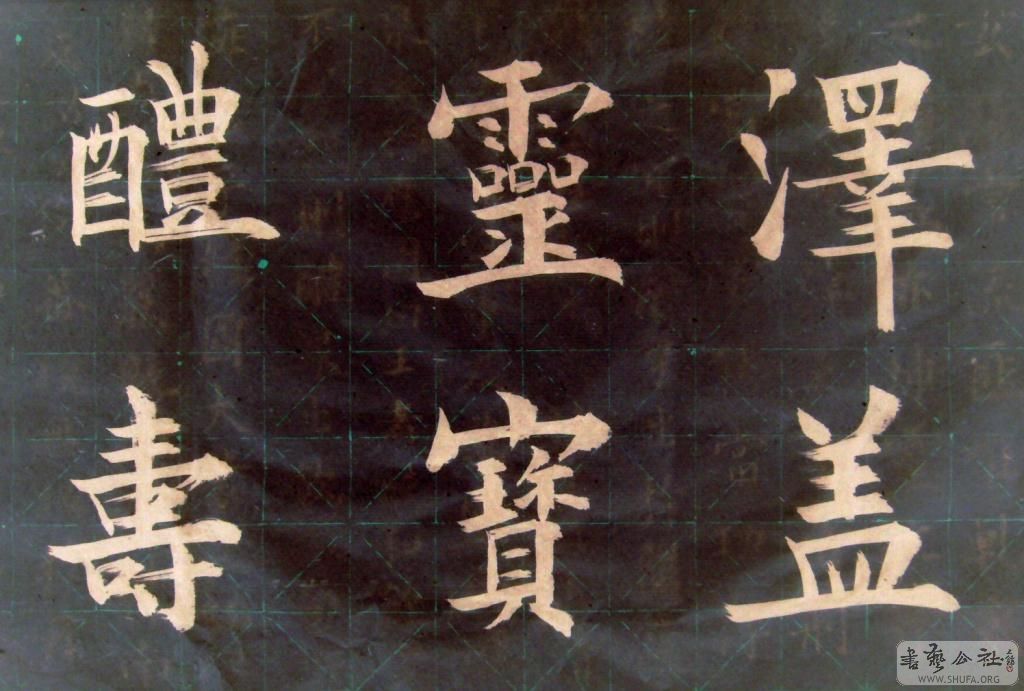 澤盖
靈寶
醴壽
書藝公社
WWW.SHUFA.ORG